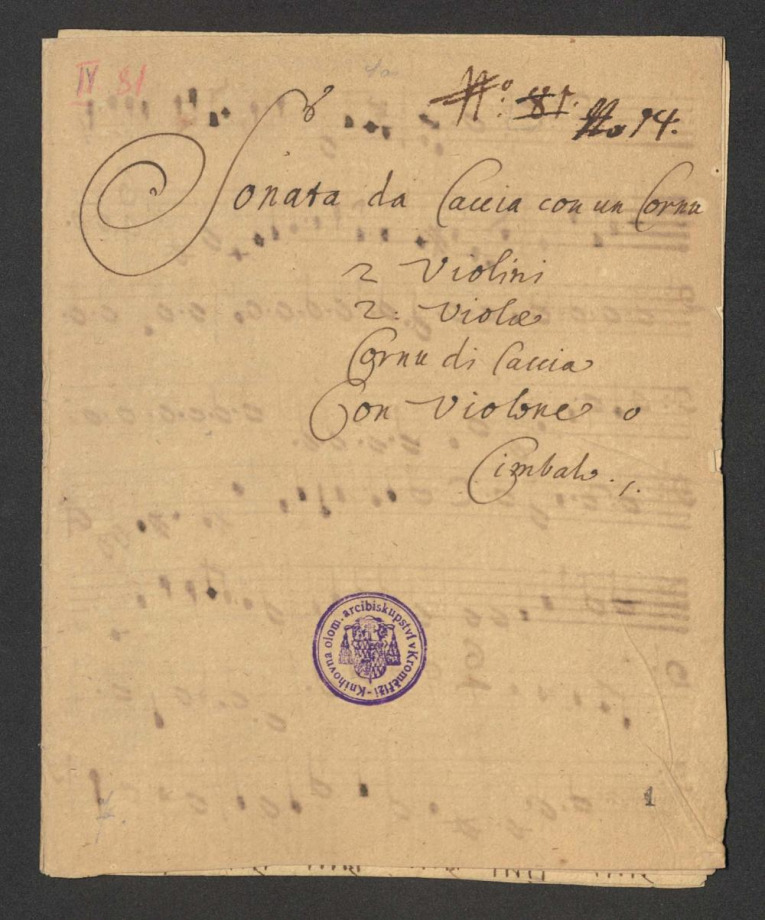 IV 81
No: 81. No 14.
Sonata da Caccia con un Cornu
2 Violini
2: Violæ
Cornu di Caccia
Con Violone o
Cimbalo ./.
Knihovna olom. arcibiskupství v Kroměříži
1